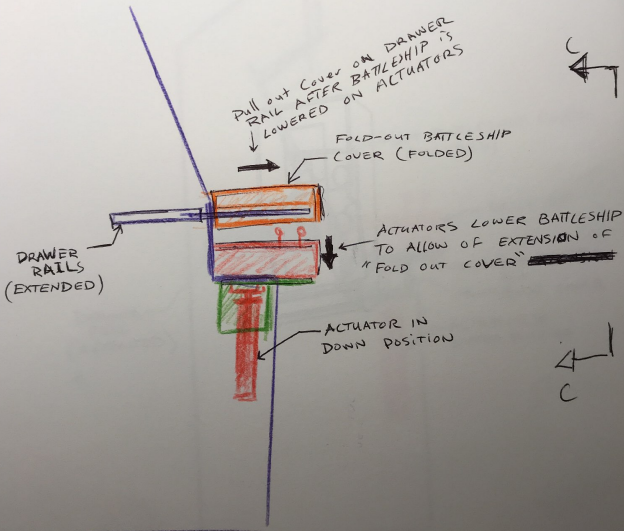 Pull out Cover on DRAWER
RAIL AFTER BATTLESHIP is
LOWERED ON ACTUATORS
C
FOLD-OUT BATTLESHIP
COVER (FOLDED)
ACTUATORS LOWER BATTLESHIP
TO ALLOW OF EXTENSION OF
"FOLD OUT COVER"
DRAWER
RAILS
(EXTENDED)
ACTUATOR IN
DOWN POSITION
C